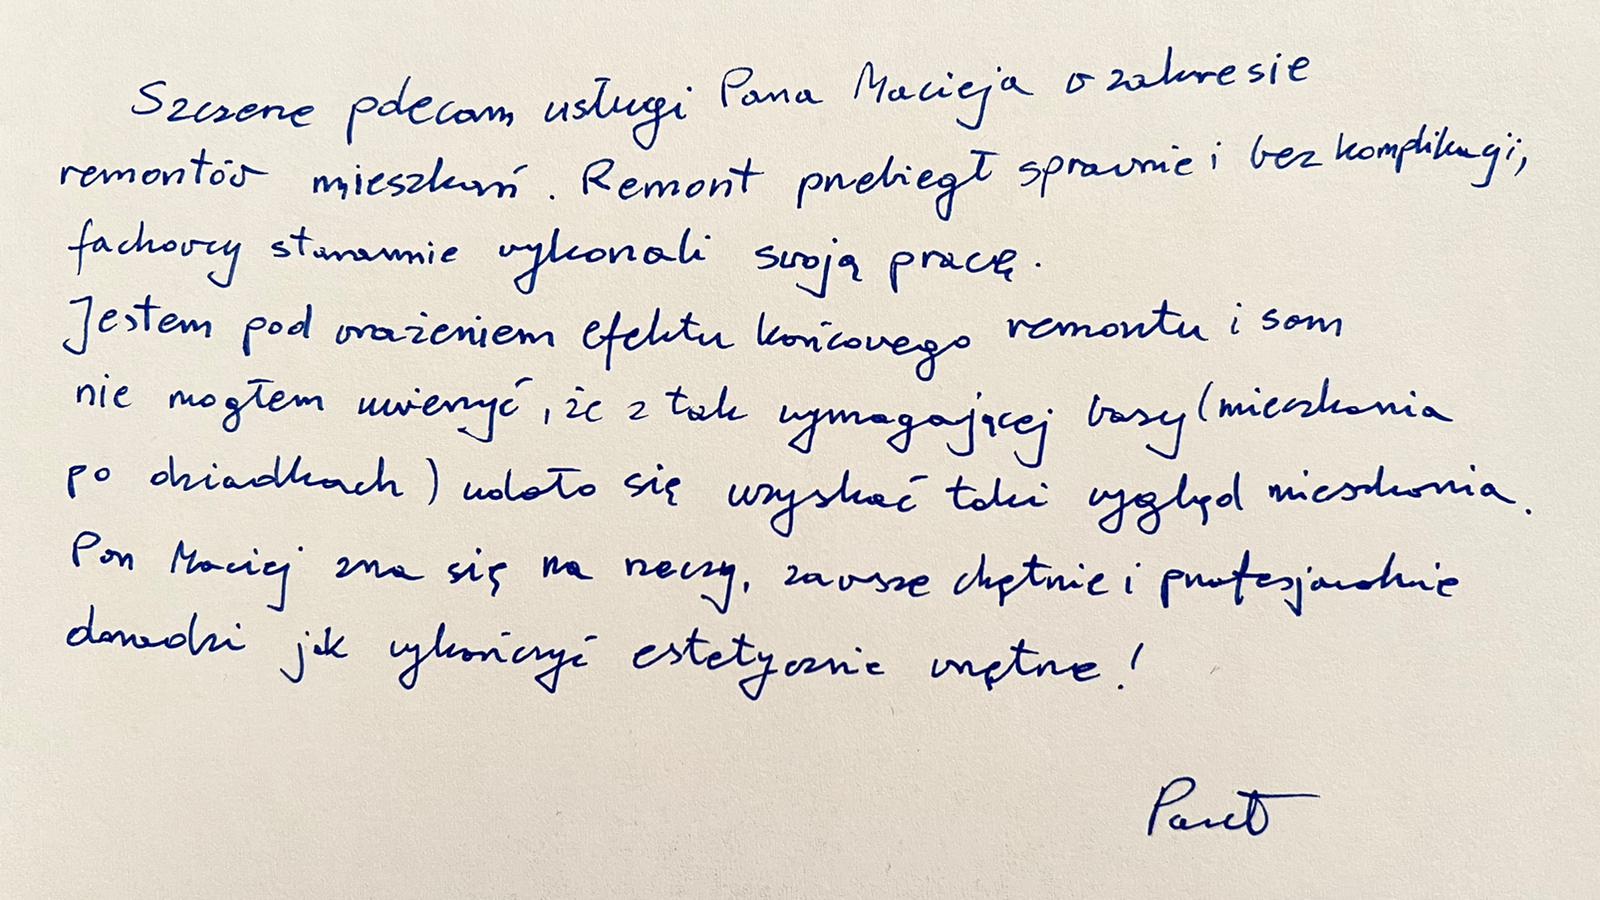 Szczerze polecam usługi Pana Macieja w zakresie
remontów mieszkań. Remont przebiegł sprawnie i bez komplikacji,
fachowcy starannie wykonali swoją pracę.
Jestem pod wrażeniem efektu końcowego remontu i sam
nie mogłem uwierzyć, że z tak wymagającej bazy (mieszkania
po dziadkach) udało się uzyskać taki wygląd mieszkania.
Pan Maciej zna się na rzeczy, zawsze chętnie i profesjonalnie
doradzi jak wykończyć estetycznie wnętrze!
Paweł